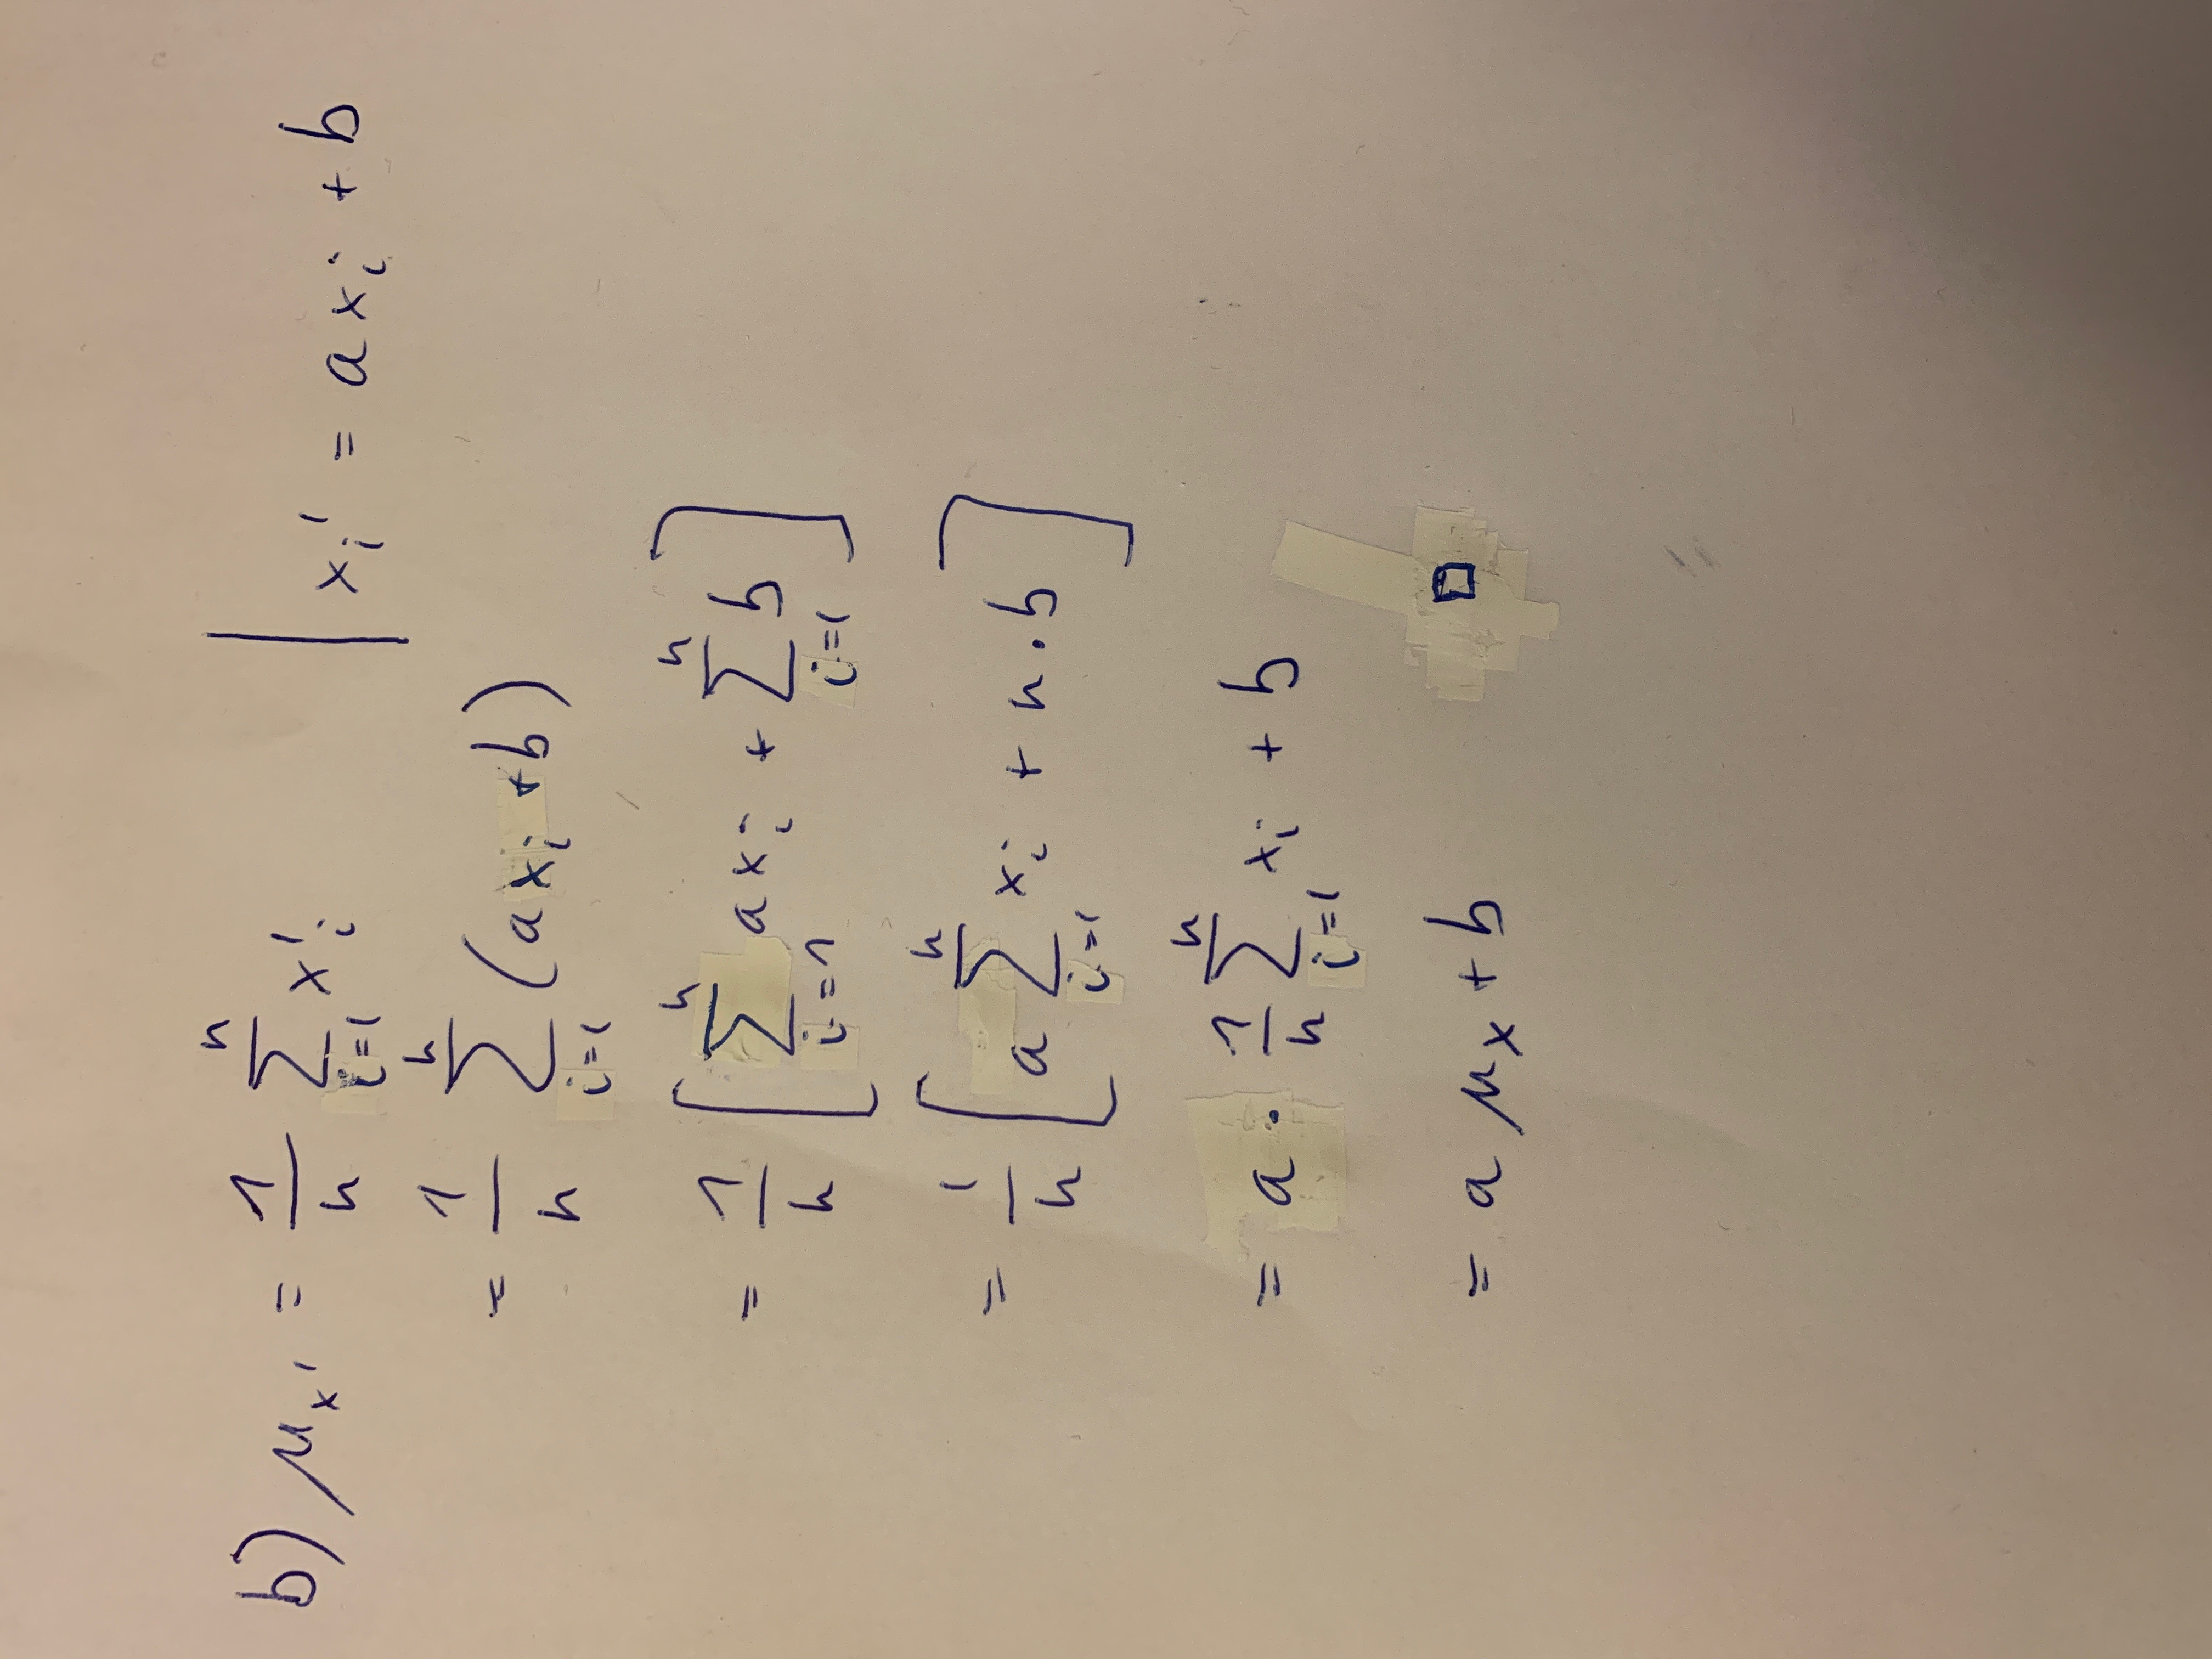 b) μ_x' = 1/n ∑_{i=1}^{n} x'_i | x_i' = a x_i + b
= 1/n ∑_{i=1}^{n} (a x_i + b)
= 1/n [ ∑_{i=1}^{n} a x_i + ∑_{i=1}^{n} b ]
= 1/n [ a ∑_{i=1}^{n} x_i + n · b ]
= a · 1/n ∑_{i=1}^{n} x_i + b
= a μ_x + b □